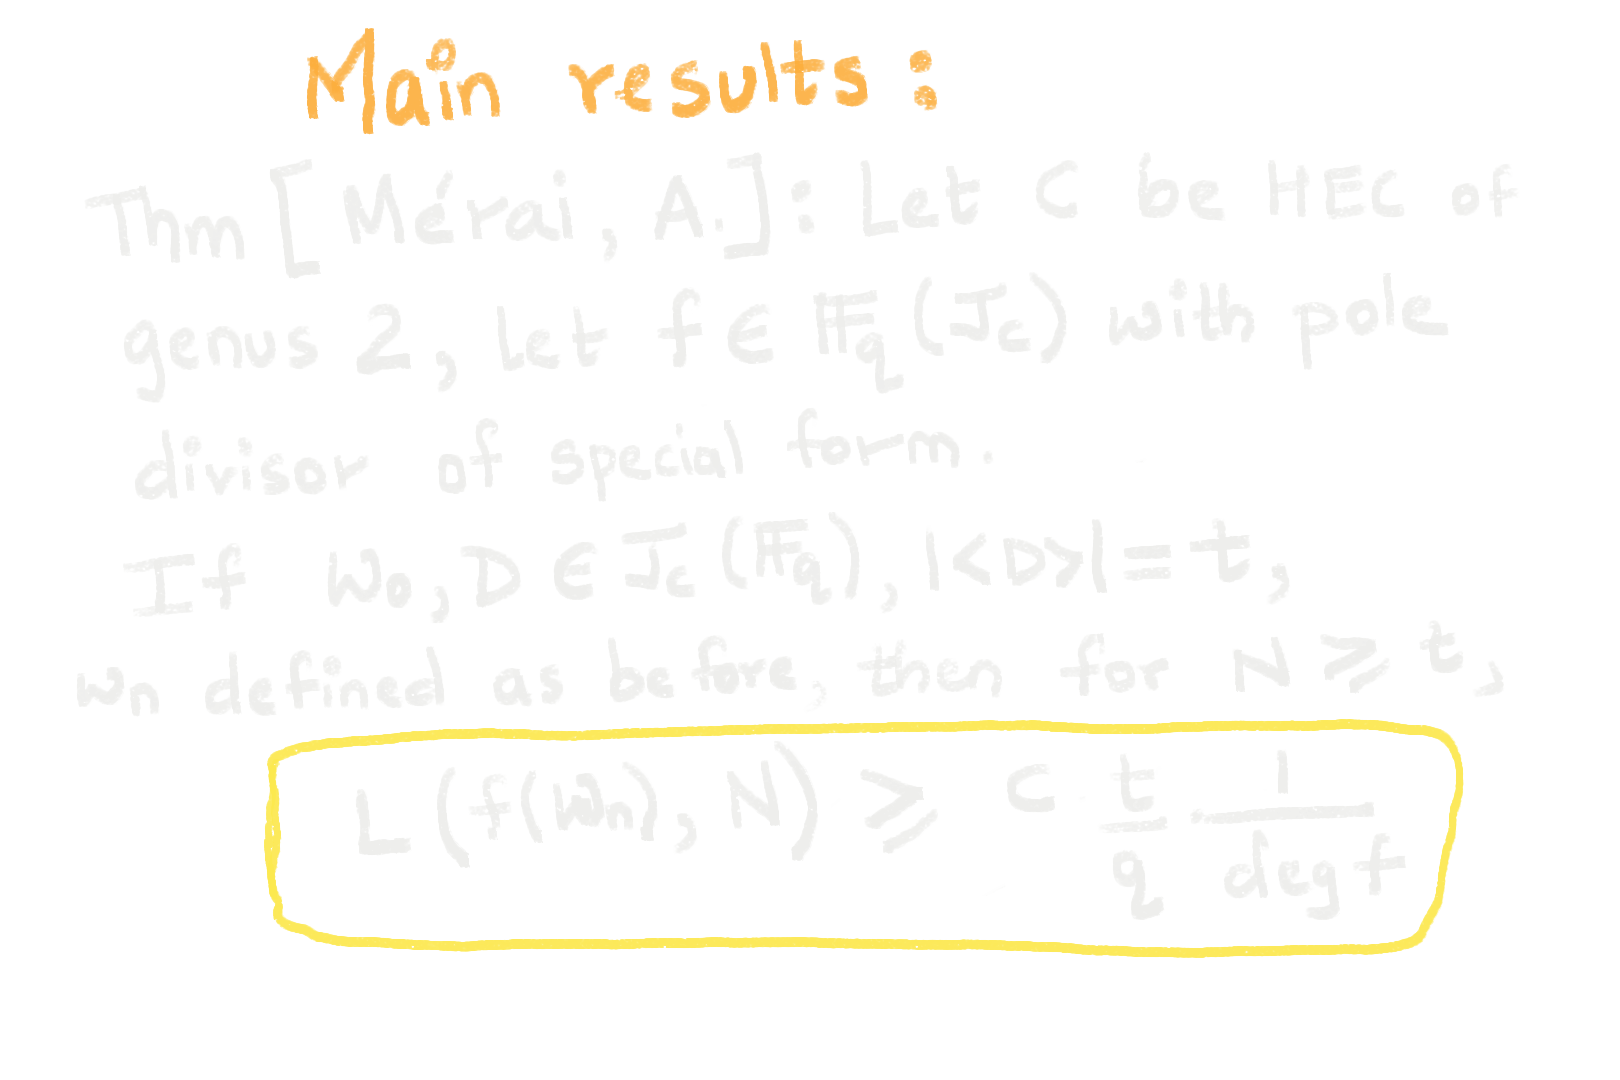 Main results:
Thm [Mérai, A.]: Let C be HEC of
genus 2, let f ∈ 𝔽q(Jc) with pole
divisor of special form.
If W₀, D ∈ Jc(𝔽q), |<D>| = t,
Wn defined as before, then for N ≥ t,
L(f(Wn), N) ≥ c t/q 1/deg f